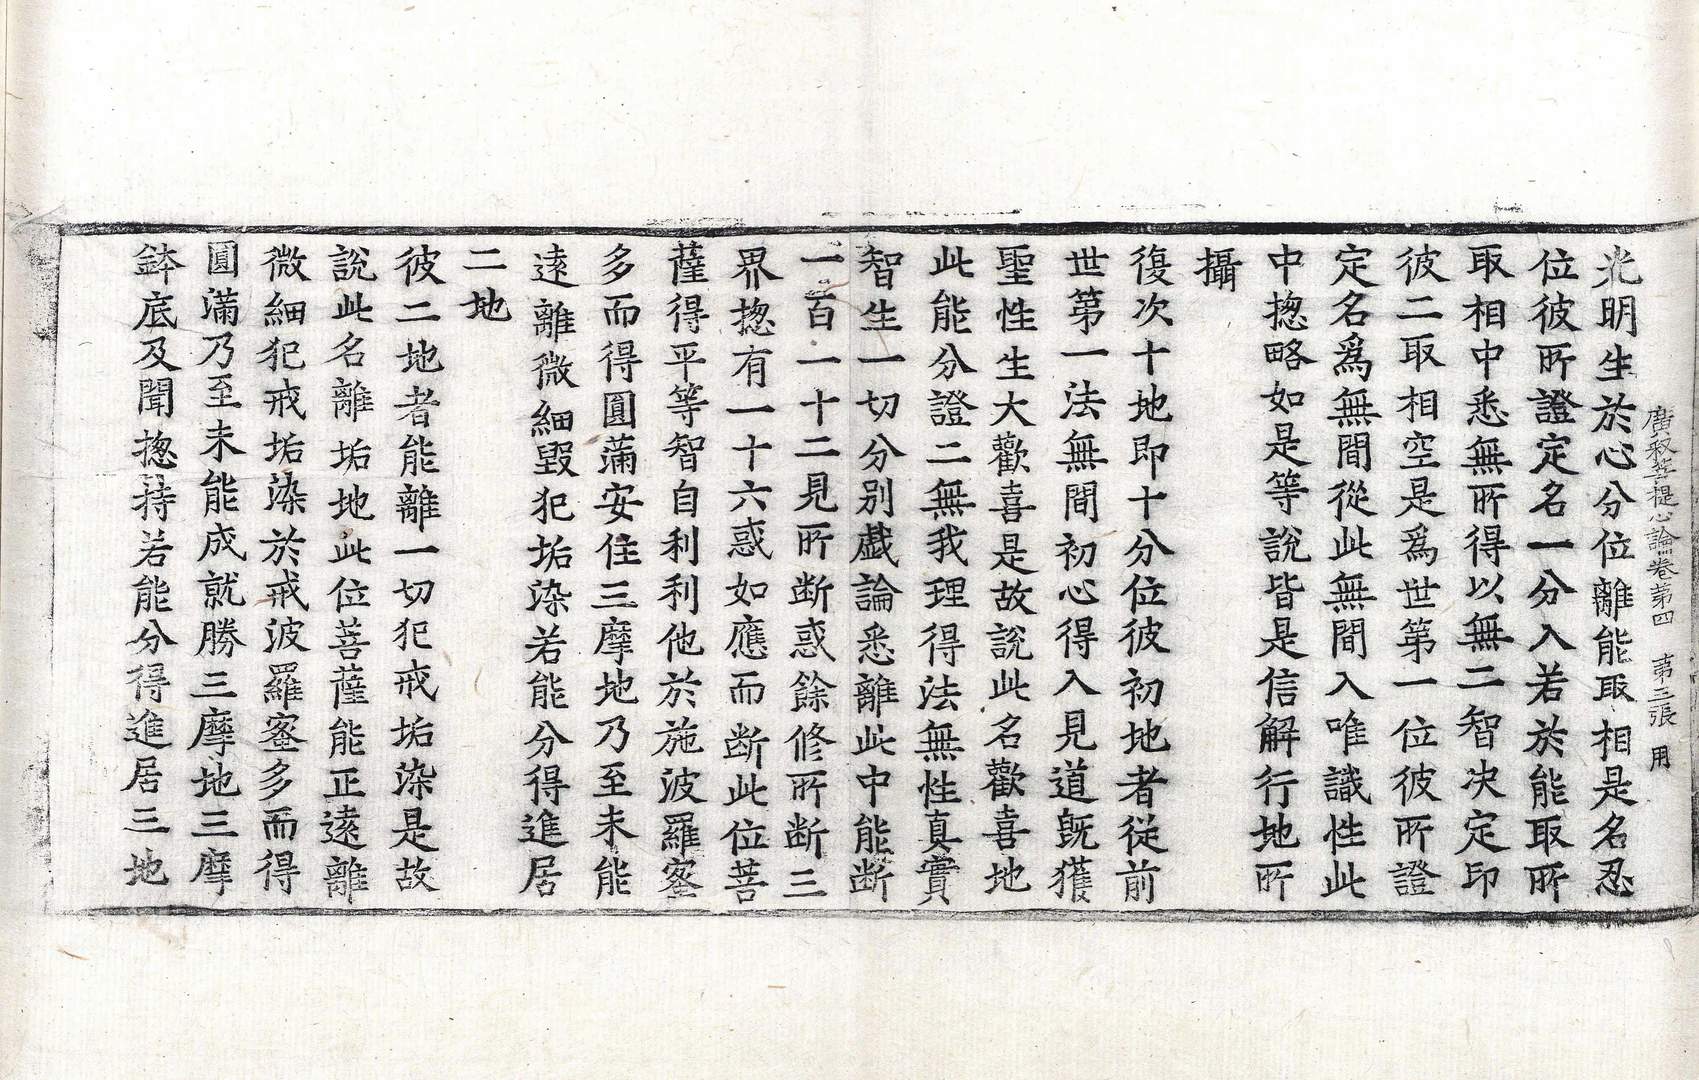 廣釋菩提心論卷第四　第三張　用
光明生於心分位離能取相是名忍
位彼所證定名一分入若於能取所
取相中悉無所得以無二智決定印
彼二取相空是爲世第一位彼所證
定名爲無間從此無間入唯識性此
中揔略如是等說皆是信解行地所
攝
復次十地即十分位彼初地者從前
世第一法無間初心得入見道旣獲
聖性生大歡喜是故說此名歡喜地
此能分證二無我理得法無性真實
智生一切分別戱論悉離此中能断
一百一十二見所断惑餘修所断三
界揔有一十六惑如應而断此位菩
薩得平等智自利利他於施波羅蜜
多而得圓滿安住三摩地乃至未能
遠離微細毀犯垢染若能分得進居
二地
彼二地者能離一切犯戒垢染是故
說此名離垢地此位菩薩能正遠離
微細犯戒垢染於戒波羅蜜多而得
圓滿乃至未能成就勝三摩地三摩
鉢底及聞揔持若能分得進居三地